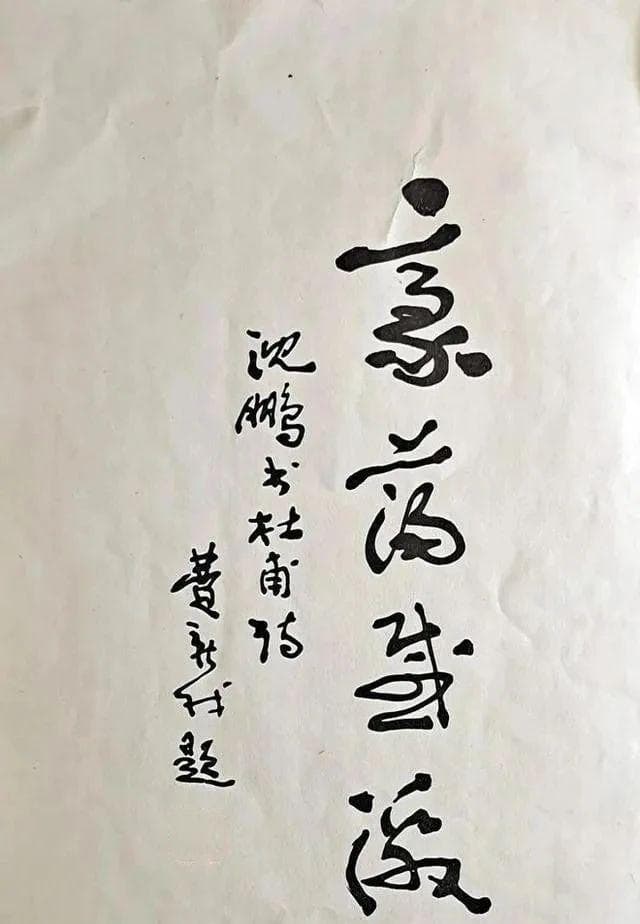 豪荡感激
沈鹏书杜甫诗
费新我题